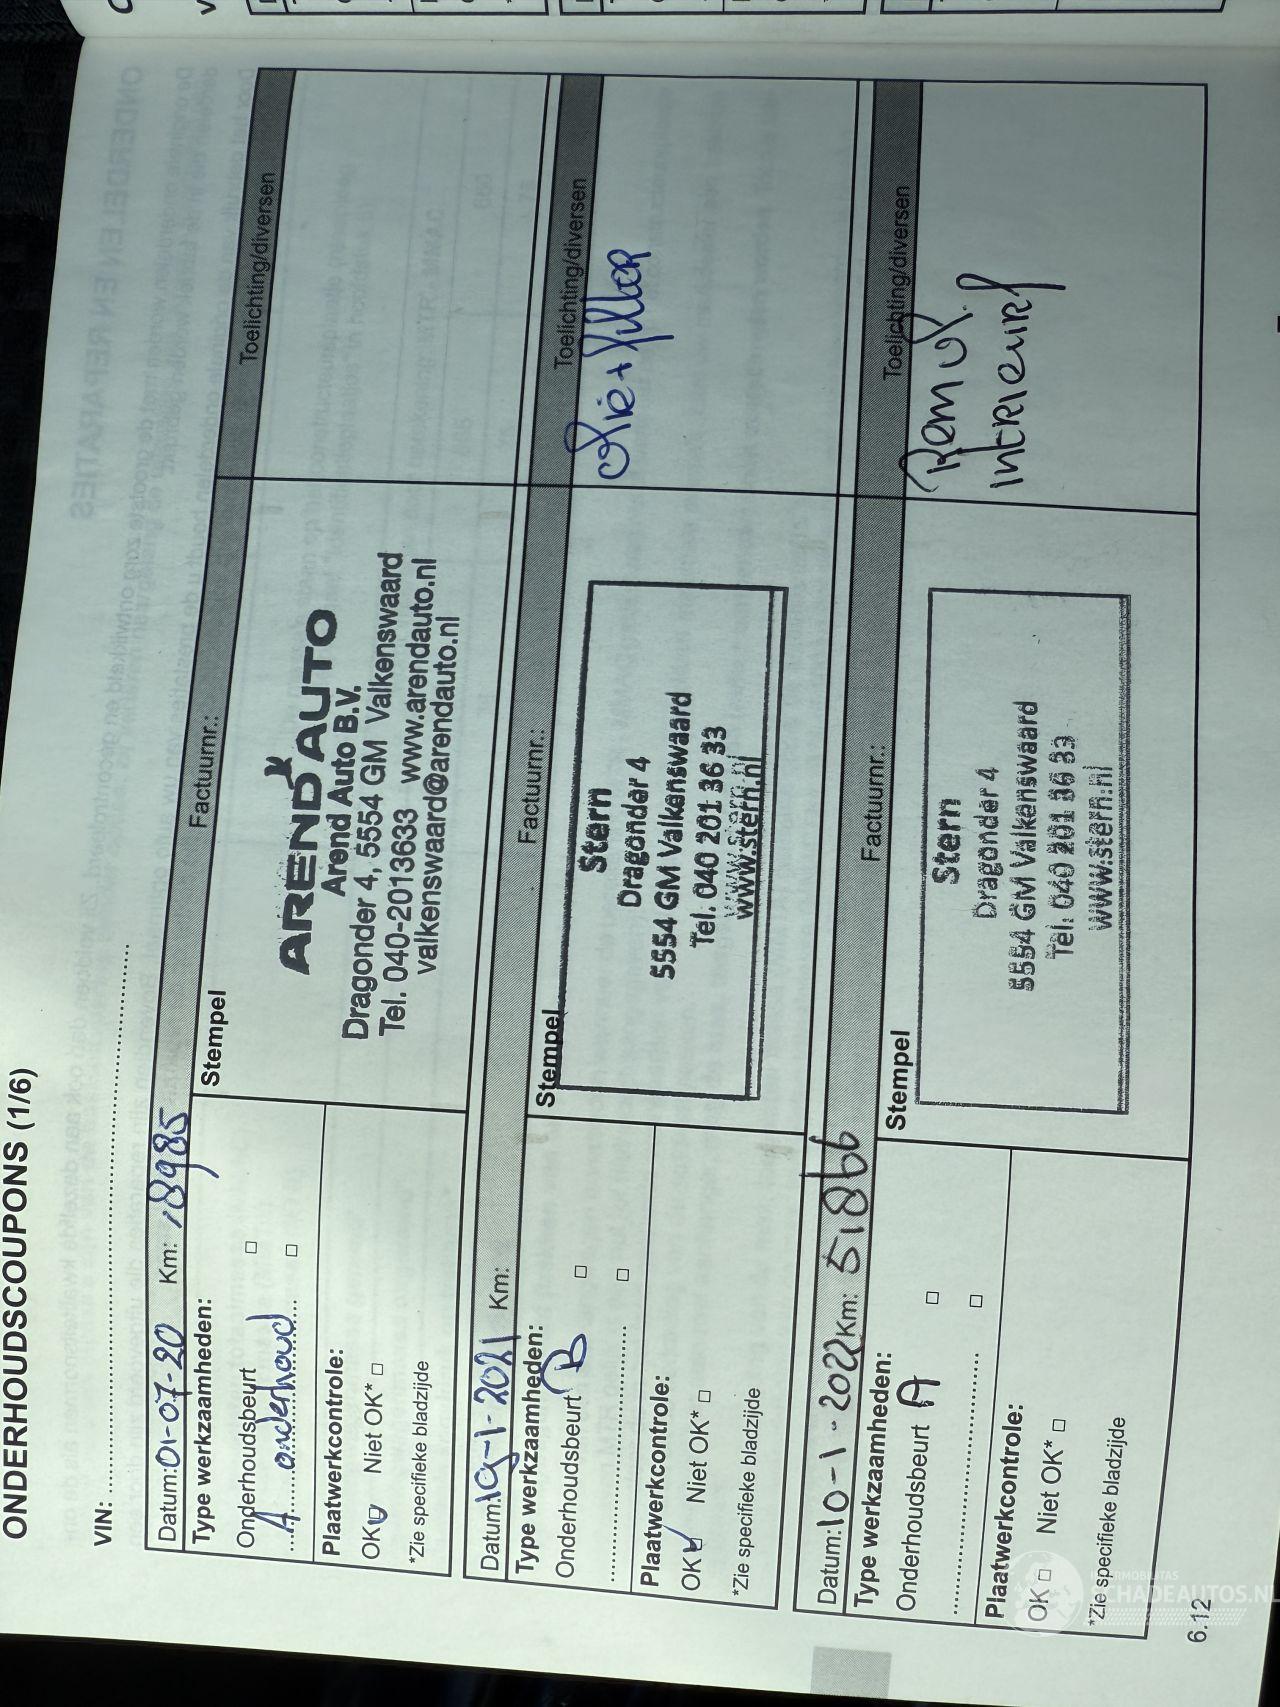 ONDERHOUDSCOUPONS (1/6)
VIN: ..........
Datum: 01-07-20 Km: 18985 Factuurnr.: Toelichting/diversen
Type werkzaamheden:
Onderhoudsbeurt □
A onderhoud □
Plaatwerkcontrole:
OK Niet OK* □
*Zie specifieke bladzijde
Stempel
AREND AUTO
Arend Auto B.V.
Dragonder 4, 5554 GM Valkenswaard
Tel. 040-2013633 www.arendauto.nl
valkenswaard@arendauto.nl
Datum: 19-1-2021 Km: Factuurnr.: Toelichting/diversen
Type werkzaamheden:
Onderhoudsbeurt B □
.......... □
Plaatwerkcontrole:
OK Niet OK* □
*Zie specifieke bladzijde
Stempel
Stern
Dragonder 4
5554 GM Valkenswaard
Tel. 040 201 36 33
www.stern.nl
Datum: 10-1-2022 Km: 51866 Factuurnr.: Toelichting/diversen
Type werkzaamheden:
Onderhoudsbeurt A □
.......... □
Plaatwerkcontrole:
OK □ Niet OK* □
*Zie specifieke bladzijde
Stempel
Stern
Dragonder 4
5554 GM Valkenswaard
Tel. 040 201 36 33
www.stern.nl
Intrieurf
6.12
SCHADEAUTOS.NL